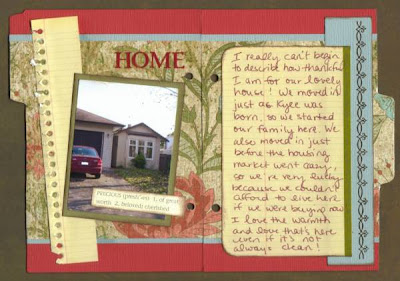 HOME
PRECIOUS (presh'əs) 1. of great
worth 2. beloved; cherished
I really can't begin
to describe how thankful
I am for our lovely
house! We moved in
just as Kyee was
born, so we started
our family here. We
also moved in just
before the housing
market went crazy,
so we're very lucky
because we couldn't
afford to live here
if we were buying now
I love the warmth
and love that's here
even if it's not
always clean!